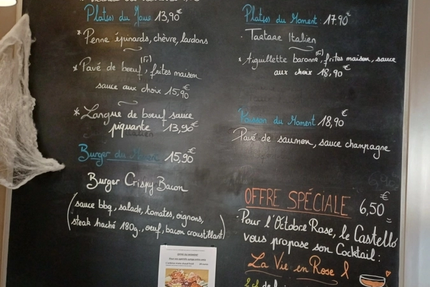 Platis du Jour 13,90€
* Penne épinards, chèvre, lardons
* Pavé de bœuf, frites maison
sauce aux choix 15,90€
* Langue de bœuf sauce
piquante 13,90€
Burger du 15,90€
Burger Crispy Bacon
(sauce bbq, salade, tomates, oignons,
steak haché 180g, oeuf, bacon croustillant)
Platis du Moment 17.90€
Tartare Italien
* Aiguillette baronne, frites maison, sauce
aux choix 18,90€
Poisson du Moment 18,90€
Pavé de saumon, sauce champagne
OFFRE SPÉCIALE 6,50€
Pour l'Octobre Rose, le Castello
vous propose son Cocktail:
La Vie en Rose